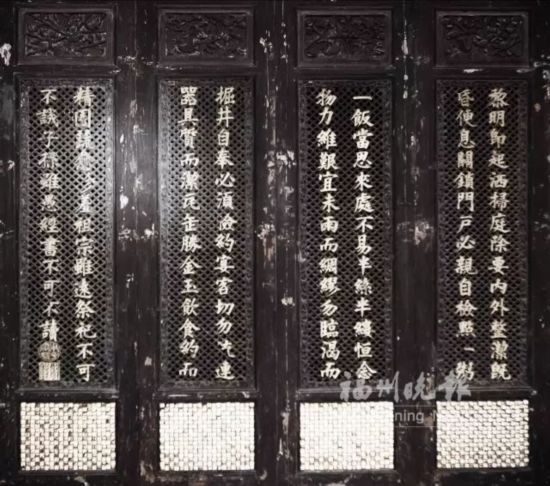 黎明即起洒掃庭除要内外整潔既
昏便息關鎖門户必親自檢點一粥
一飯當思來處不易半絲半縷恒念
物力維艱宜未雨而綢繆勿臨渴而
掘井自奉必須儉約宴客切勿流連
器具質而潔瓦缶勝金玉飲食約而
精園蔬愈珍羞祖宗雖遠祭祀不可
不誠子孫雖愚經書不可不讀
福州晚報